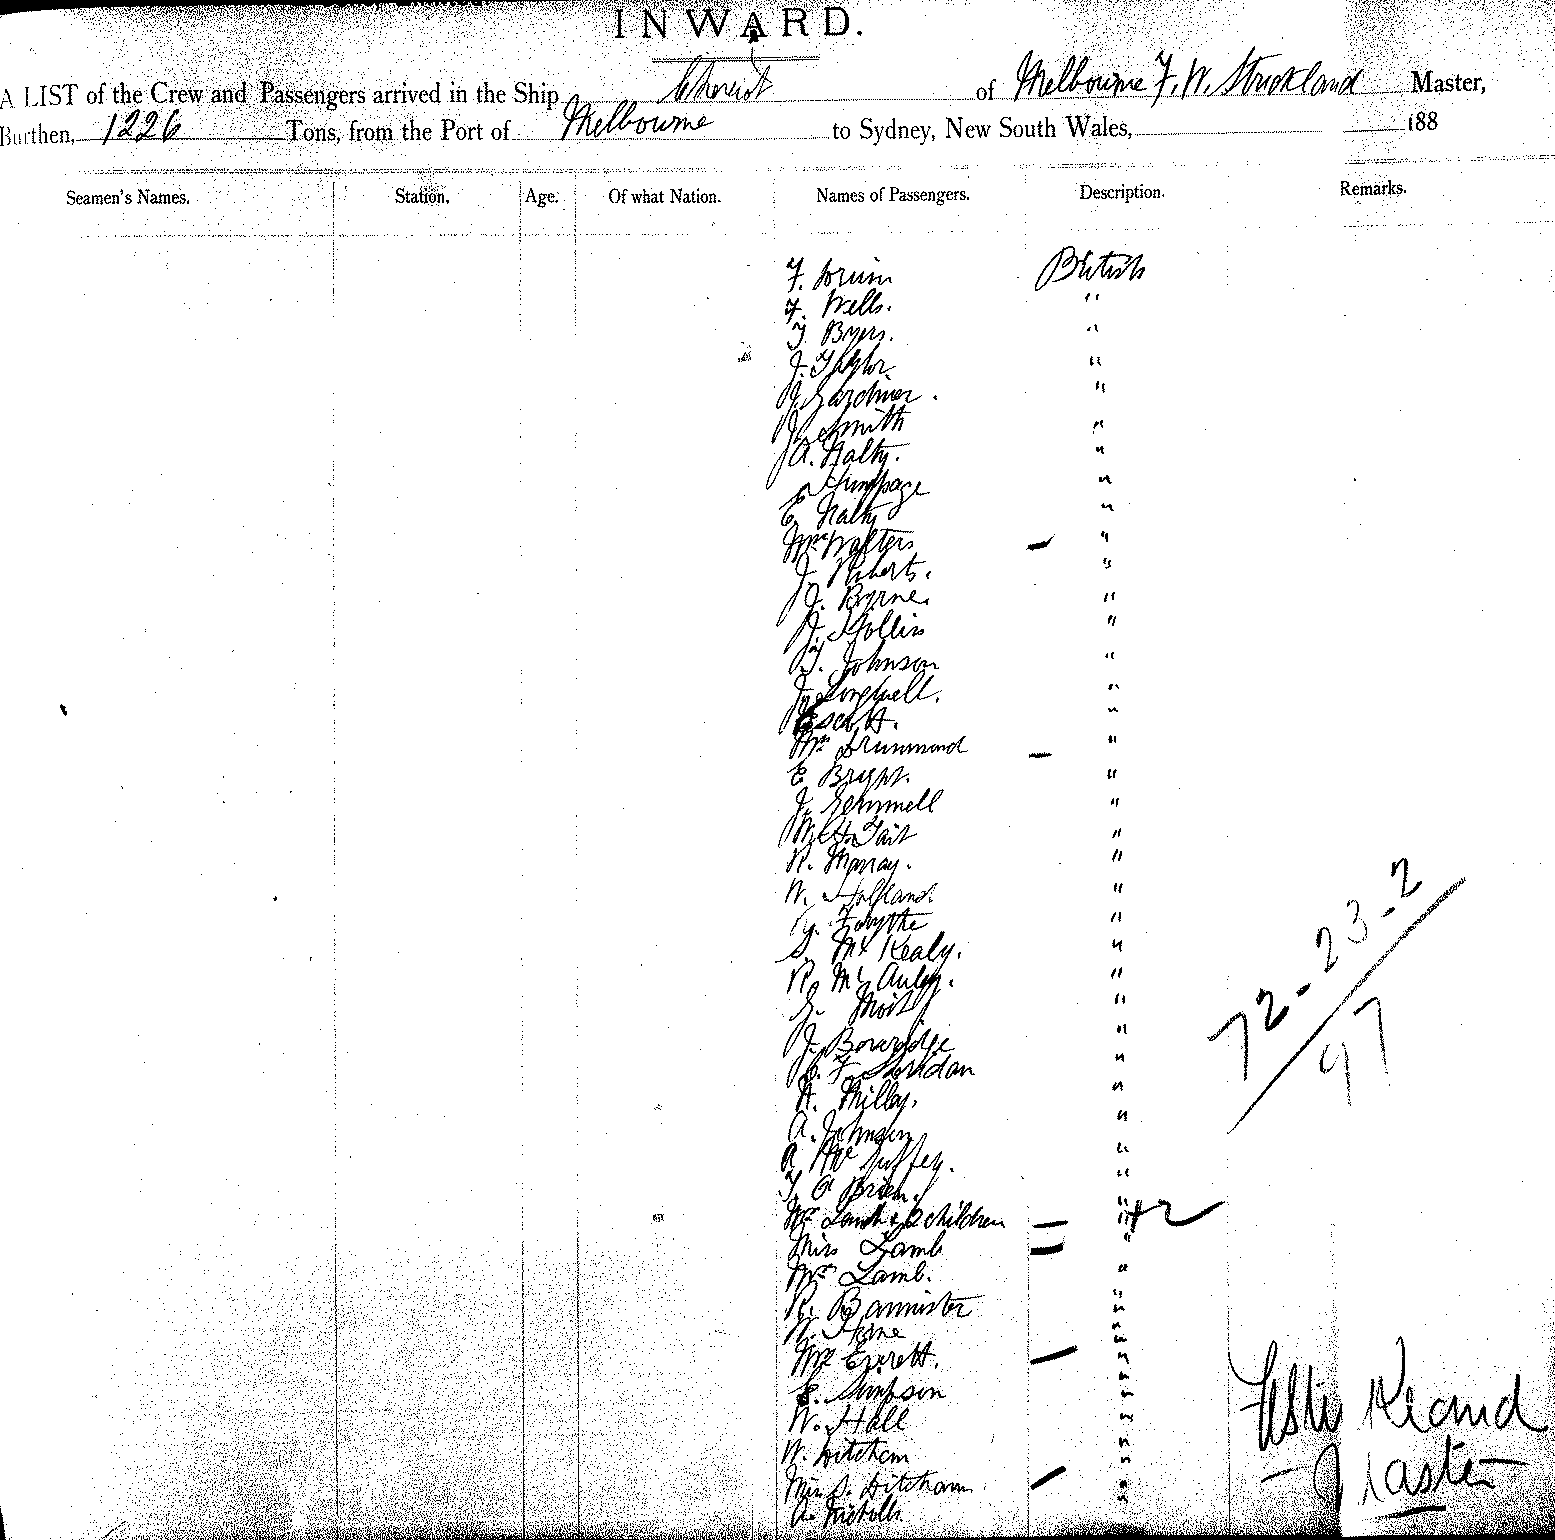 INWARD.
A LIST of the Crew and Passengers arrived in the Ship Cheviot of Melbourne F. W. Strickland Master,
Burthen, 1226 Tons, from the Port of Melbourne to Sydney, New South Wales, 188
Seamen's Names. Station. Age. Of what Nation. Names of Passengers. Description. Remarks.
F. British
F. Wells. "
J. Byers. "
J. Taylor. "
J. Gardiner. "
J. Smith "
A. Nalty. "
"
E. Nalty "
Mrs Walters "
J. Roberts. "
J. Byrne. "
J. Hollis "
J. Johnson "
J. Longwell. "
Escott. "
Mrs Drummond "
E Bryant. "
J. Gemmell "
W. H. Tait "
R. Murray. "
W. Holland. "
Forsythe "
S. Mc Kealy. "
R. Mc Auley. "
G. "
J. "
F. Sheridan "
A. Milley. "
A. Johnson "
A Mc Guffey. "
T. O Brien. "
Mr Lamb & 2 children " +2
Miss Lamb "
Mrs Lamb. "
R. Bannister "
W. Hine "
Mrs Everett. "
E. Simpson "
W. Hall "
W. Ditcham "
Miss S. Ditcham "
A. Nicholls "
72-23-2
97
Master